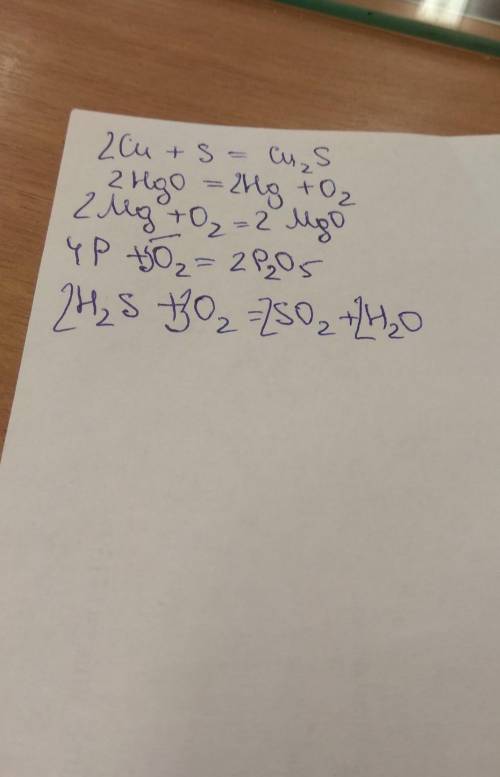 2Cu + S = Cu₂S
2HgO = 2Hg + O₂
2Mg + O₂ = 2 MgO
4P + 5O₂ = 2P₂O₅
2H₂S + 3O₂ = 2SO₂ + 2H₂O